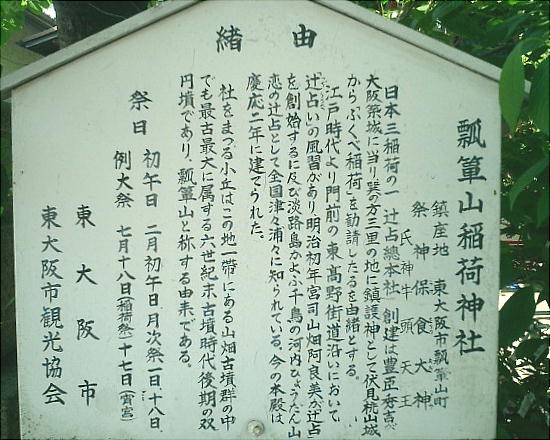 由緒
瓢箪山稲荷神社
鎮座地 東大阪市瓢箪山町
祭神 保食大神
氏神 牛頭天王
日本三稲荷の一、辻占總本社、創建は豊臣秀吉が
大阪築城に当り巽の方三里の地に鎮護神として伏見桃山城
からふくべ稲荷を勧請したるを由緒とする。
江戸時代より門前の東高野街道沿いにおいて
辻占いの風習があり明治初年宮司山畑阿良美が辻占
を創始するに及び淡路島かよふ千鳥の河内ひょうたん山
恋の辻占として全国津々浦々に知られている。今の本殿は、
慶応二年に建てられた。
社をまつる小丘はこの地一帯にある山畑古墳群の中
でも最古最大に属する六世紀末古墳時代後期の双
円墳であり、瓢箪山と称する由来である。
祭日 初午日 二月初午日 月次祭 一日、十八日
例大祭 七月十八日(稲荷祭)十七日(宵宮)
東大阪市
東大阪市観光協会